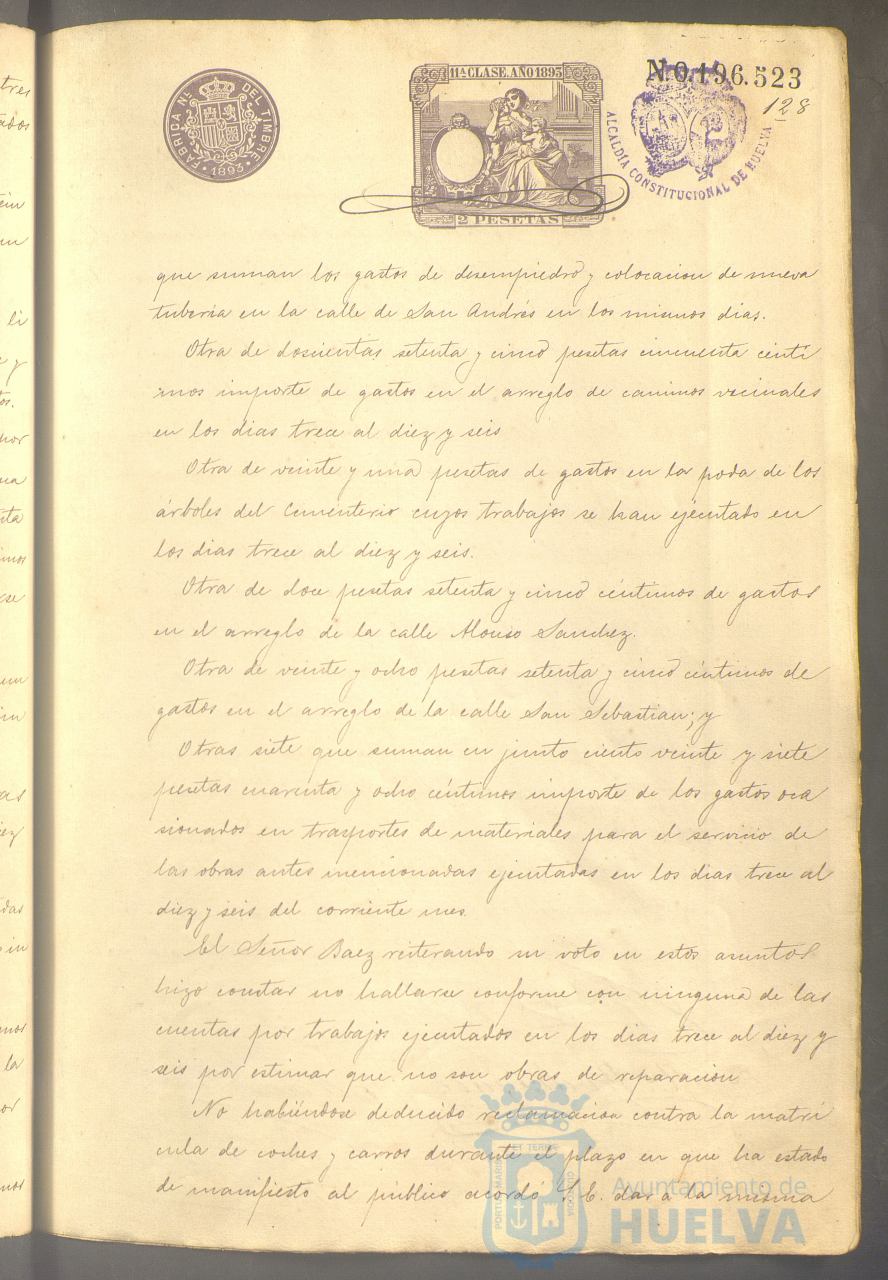 FABRICA Nal DEL TIMBRE
1893
11ª CLASE. AÑO 1893
2 PESETAS
N.0.196.523
128
ALCALDIA CONSTITUCIONAL DE HUELVA
que suman los gastos de desempiedro y colocacion de nueva
tuberia en la calle de San Andrés en los mismos dias.
Otra de doscientas setenta y cinco pesetas cincuenta centi
mos importe de gastos en el arreglo de caminos vecinales
en los dias trece al diez y seis
Otra de veinte y una pesetas de gastos en la poda de los
árboles del Cementerio cuyos trabajos se han ejecutado en
los dias trece al diez y seis.
Otra de doce pesetas setenta y cinco céntimos de gastos
en el arreglo de la calle Alonso Sanchez.
Otra de veinte y ocho pesetas setenta y cinco céntimos de
gastos en el arreglo de la calle San Sebastian; y
Otras siete que suman en junto ciento veinte y siete
pesetas cuarenta y ocho céntimos importe de los gastos oca
sionados en trasportes de materiales para el servicio de
las obras antes mencionadas ejecutadas en los dias trece al
diez y seis del corriente mes.
El Señor Baez reiterando su voto en estos asuntos
hizo constar no hallarse conforme con ninguna de las
cuentas por trabajos ejecutados en los dias trece al diez y
seis por estimar que no son obras de reparacion
No habiéndose deducido reclamacion contra la matri
cula de coches y carros durante el plazo en que ha estado
de manifiesto al público acordó S. E. dar a la misma
PORTUS MARIS ET TERRE CUSTODIA
Ayuntamiento de
HUELVA